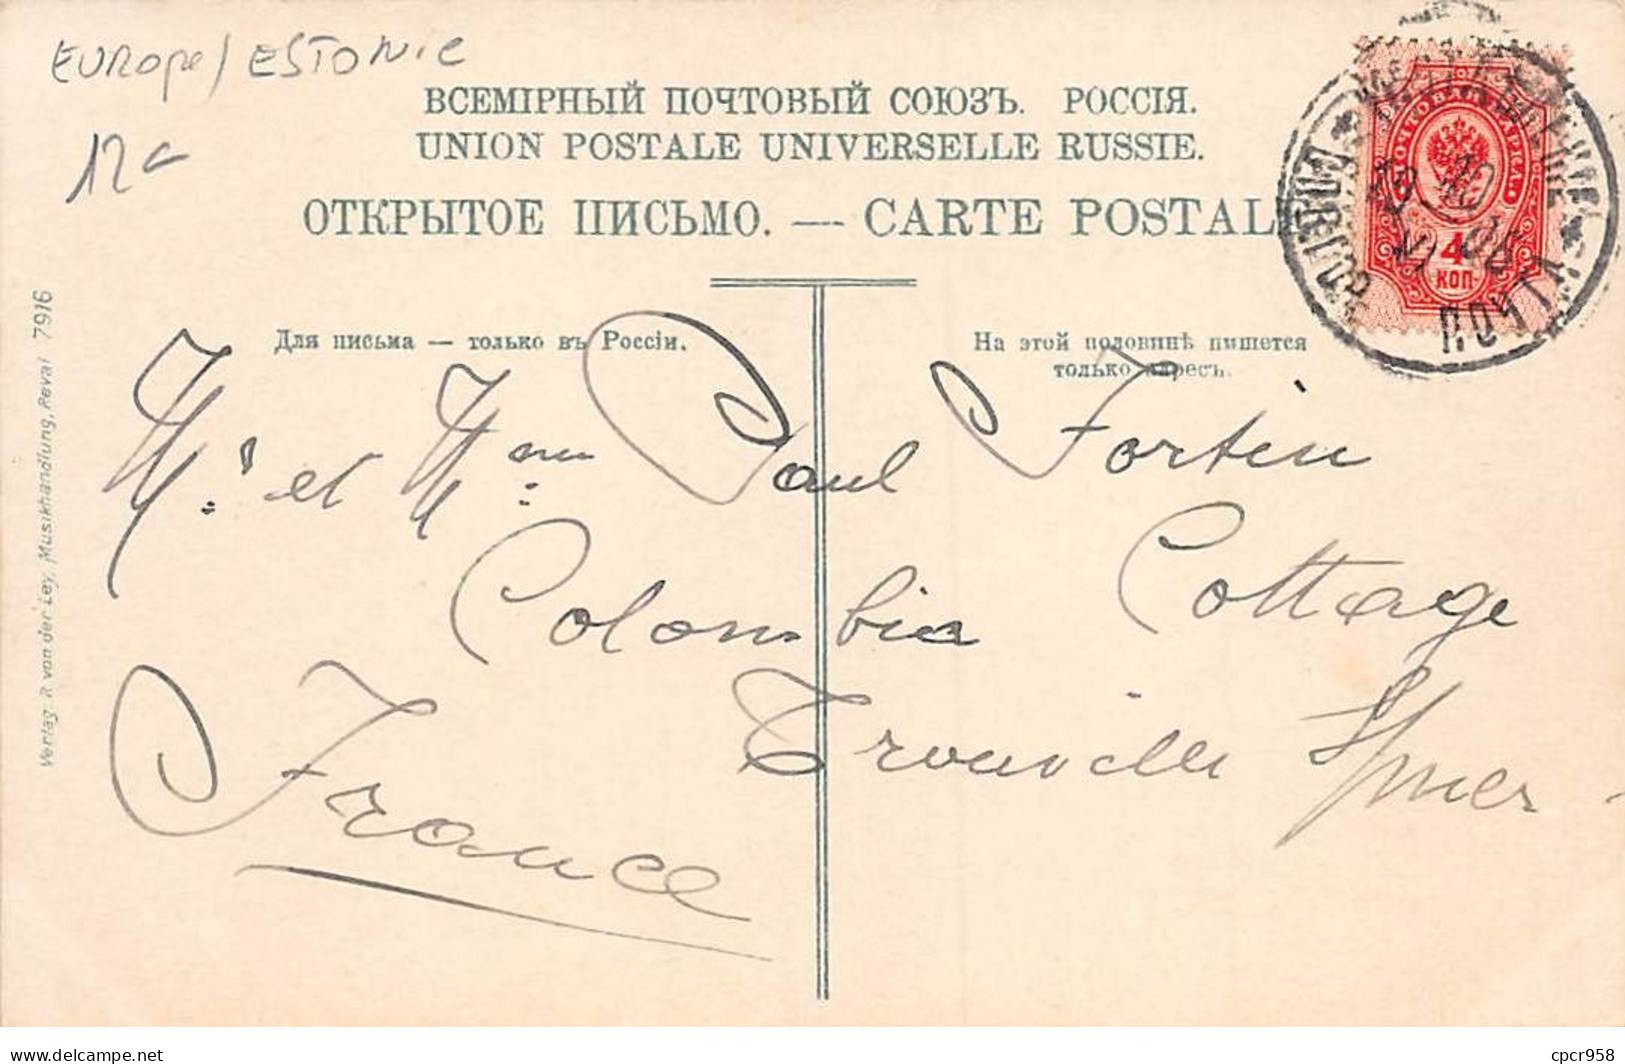 EUROpe/ ESTONIE
12€
ВСЕМІРНЫЙ ПОЧТОВЫЙ СОЮЗЪ. РОССІЯ.
UNION POSTALE UNIVERSELLE RUSSIE.
ОТКРЫТОЕ ПИСЬМО. — CARTE POSTAL
ПОЧТОВАЯ МАРКА
4
КОП
ПОЧТА
Для письма — только въ Россіи.
На этой половинѣ пишется
только адресъ.
Mr. et Mme. Paul Fortin
Colombia Cottage
Trouville s/mer
France
Verlag. R von der Ley, Musikhandlung, Reval 7916
delcampe.net
cpcr958